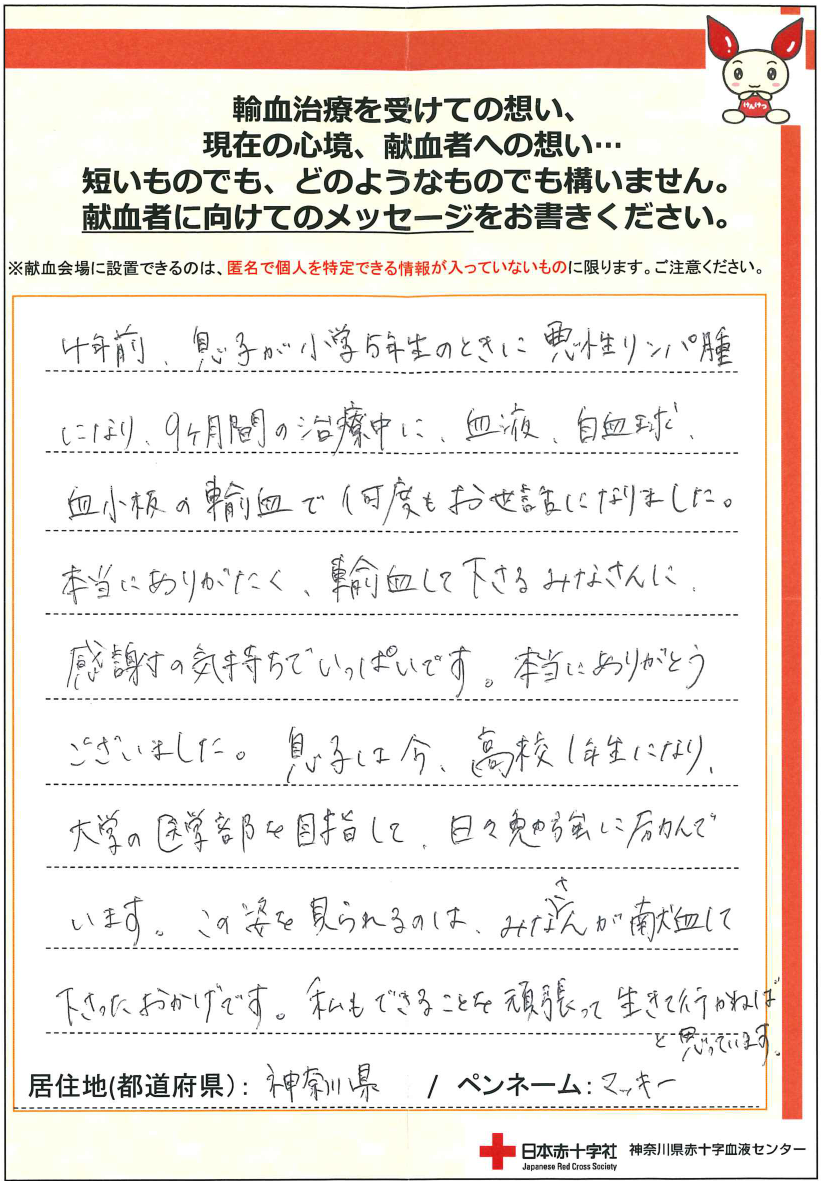 けんけつ
輸血治療を受けての想い、
現在の心境、献血者への想い…
短いものでも、どのようなものでも構いません。
献血者に向けてのメッセージをお書きください。
※献血会場に設置できるのは、匿名で個人を特定できる情報が入っていないものに限ります。ご注意ください。
4年前、息子が小学5年生のときに悪性リンパ腫
になり、9ヶ月間の治療中に、血液、白血球、
血小板の輸血で何度もお世話になりました。
本当にありがたく、輸血して下さるみなさんに、
感謝の気持ちでいっぱいです。本当にありがとう
ございました。息子は今、高校1年生になり、
大学の医学部を目指して、日々勉強に励んで
います。この姿を見られるのは、みなさんが献血して
下さったおかげです。私もできることを頑張って生きて行かねば
と思っています。
居住地(都道府県)：神奈川県 / ペンネーム：マッキー
日本赤十字社 神奈川県赤十字血液センター
Japanese Red Cross Society